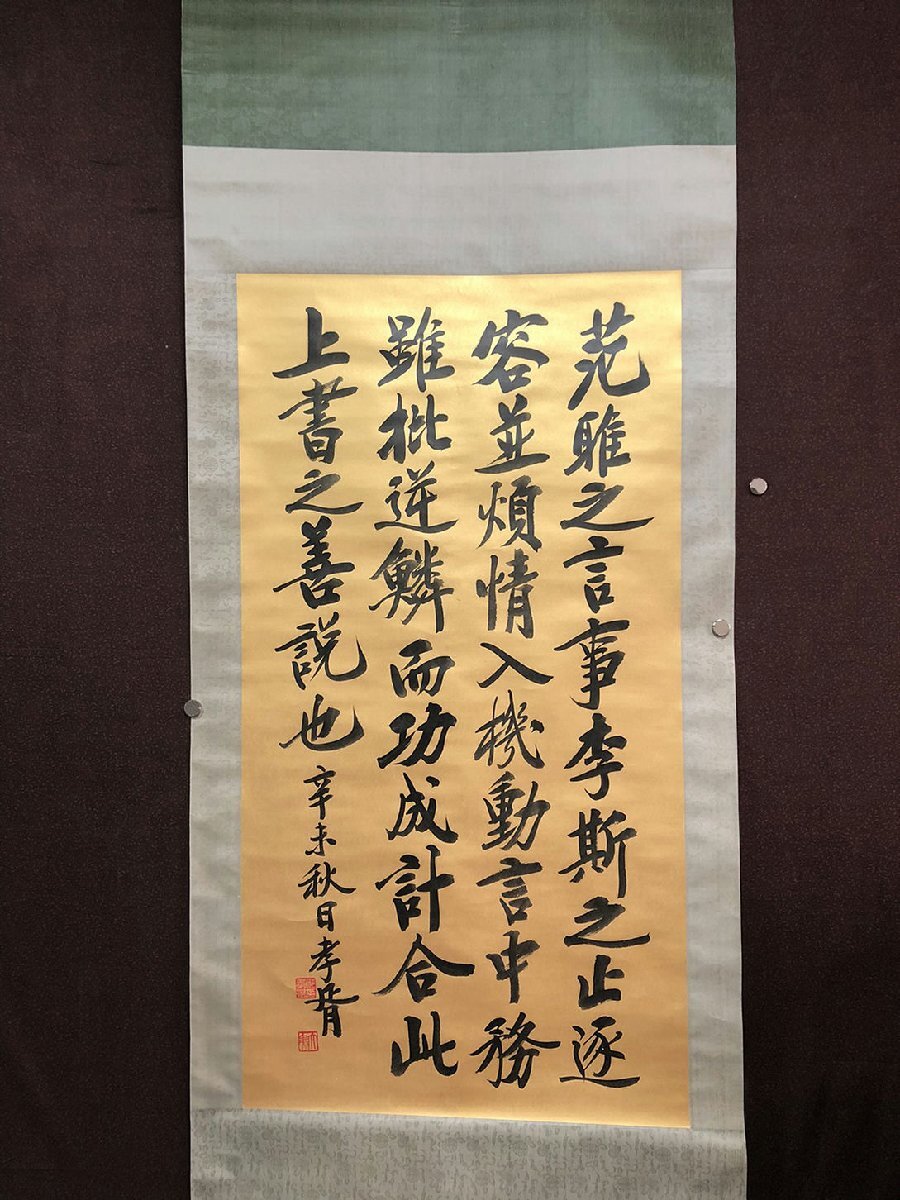 范雎之言事李斯之止逐
容並煩情入機動言中務
雖批逆鱗而功成計合此
上書之善說也
辛未秋日孝胥